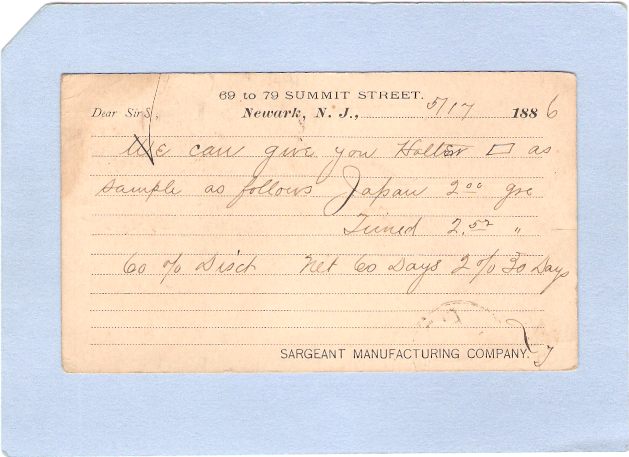 69 to 79 SUMMIT STREET.
Dear Sirs, Newark, N. J., 5/17 1886
We can give you Halter ▭ as
sample as follows Japan 2.00 gro
Tinned 2.52 "
60 % Disct Net 60 Days 2 % 30 Days
SARGEANT MANUFACTURING COMPANY.